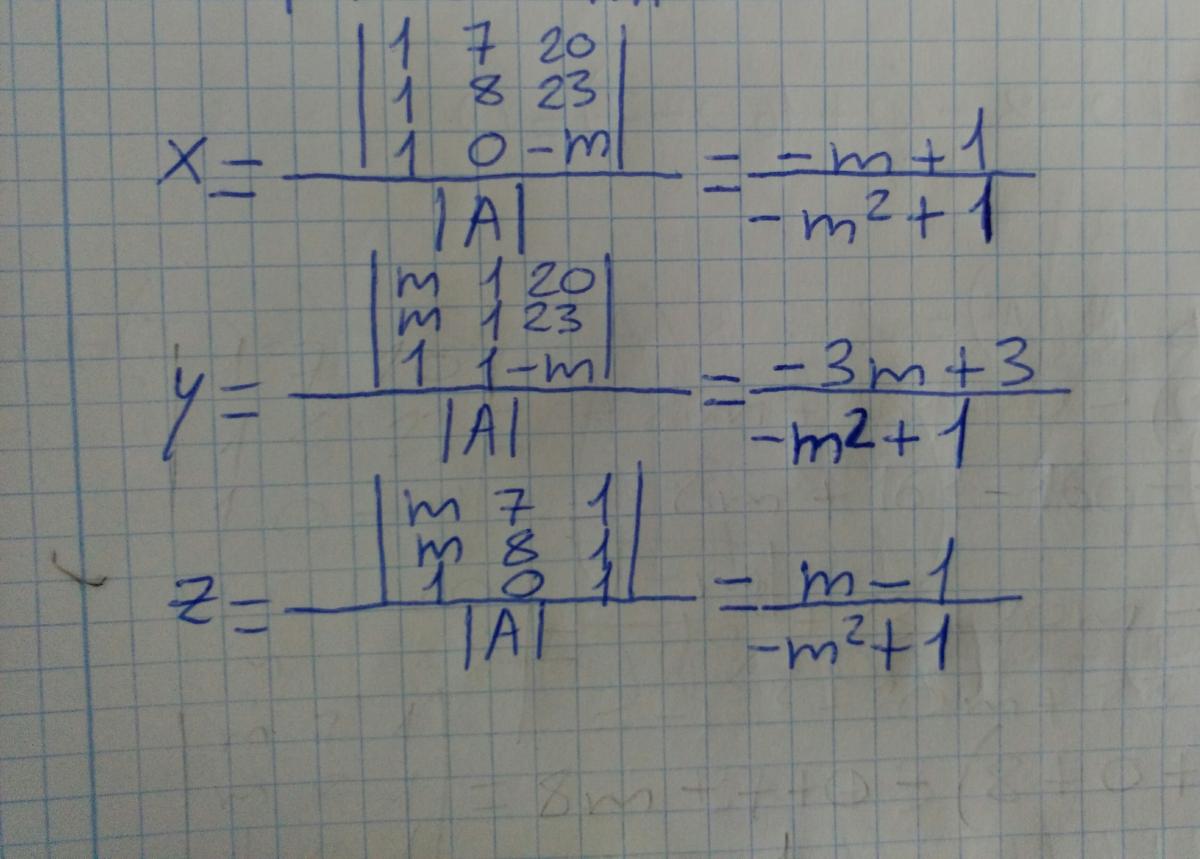 |1 7 20|
|1 8 23|
|1 0 -m|
x = ――― = -m+1 / -m²+1
|A|
|m 1 20|
|m 1 23|
|1 1 -m|
y = ――― = -3m+3 / -m²+1
|A|
|m 7 1|
|m 8 1|
|1 0 1|
z = ――― = m-1 / -m²+1
|A|